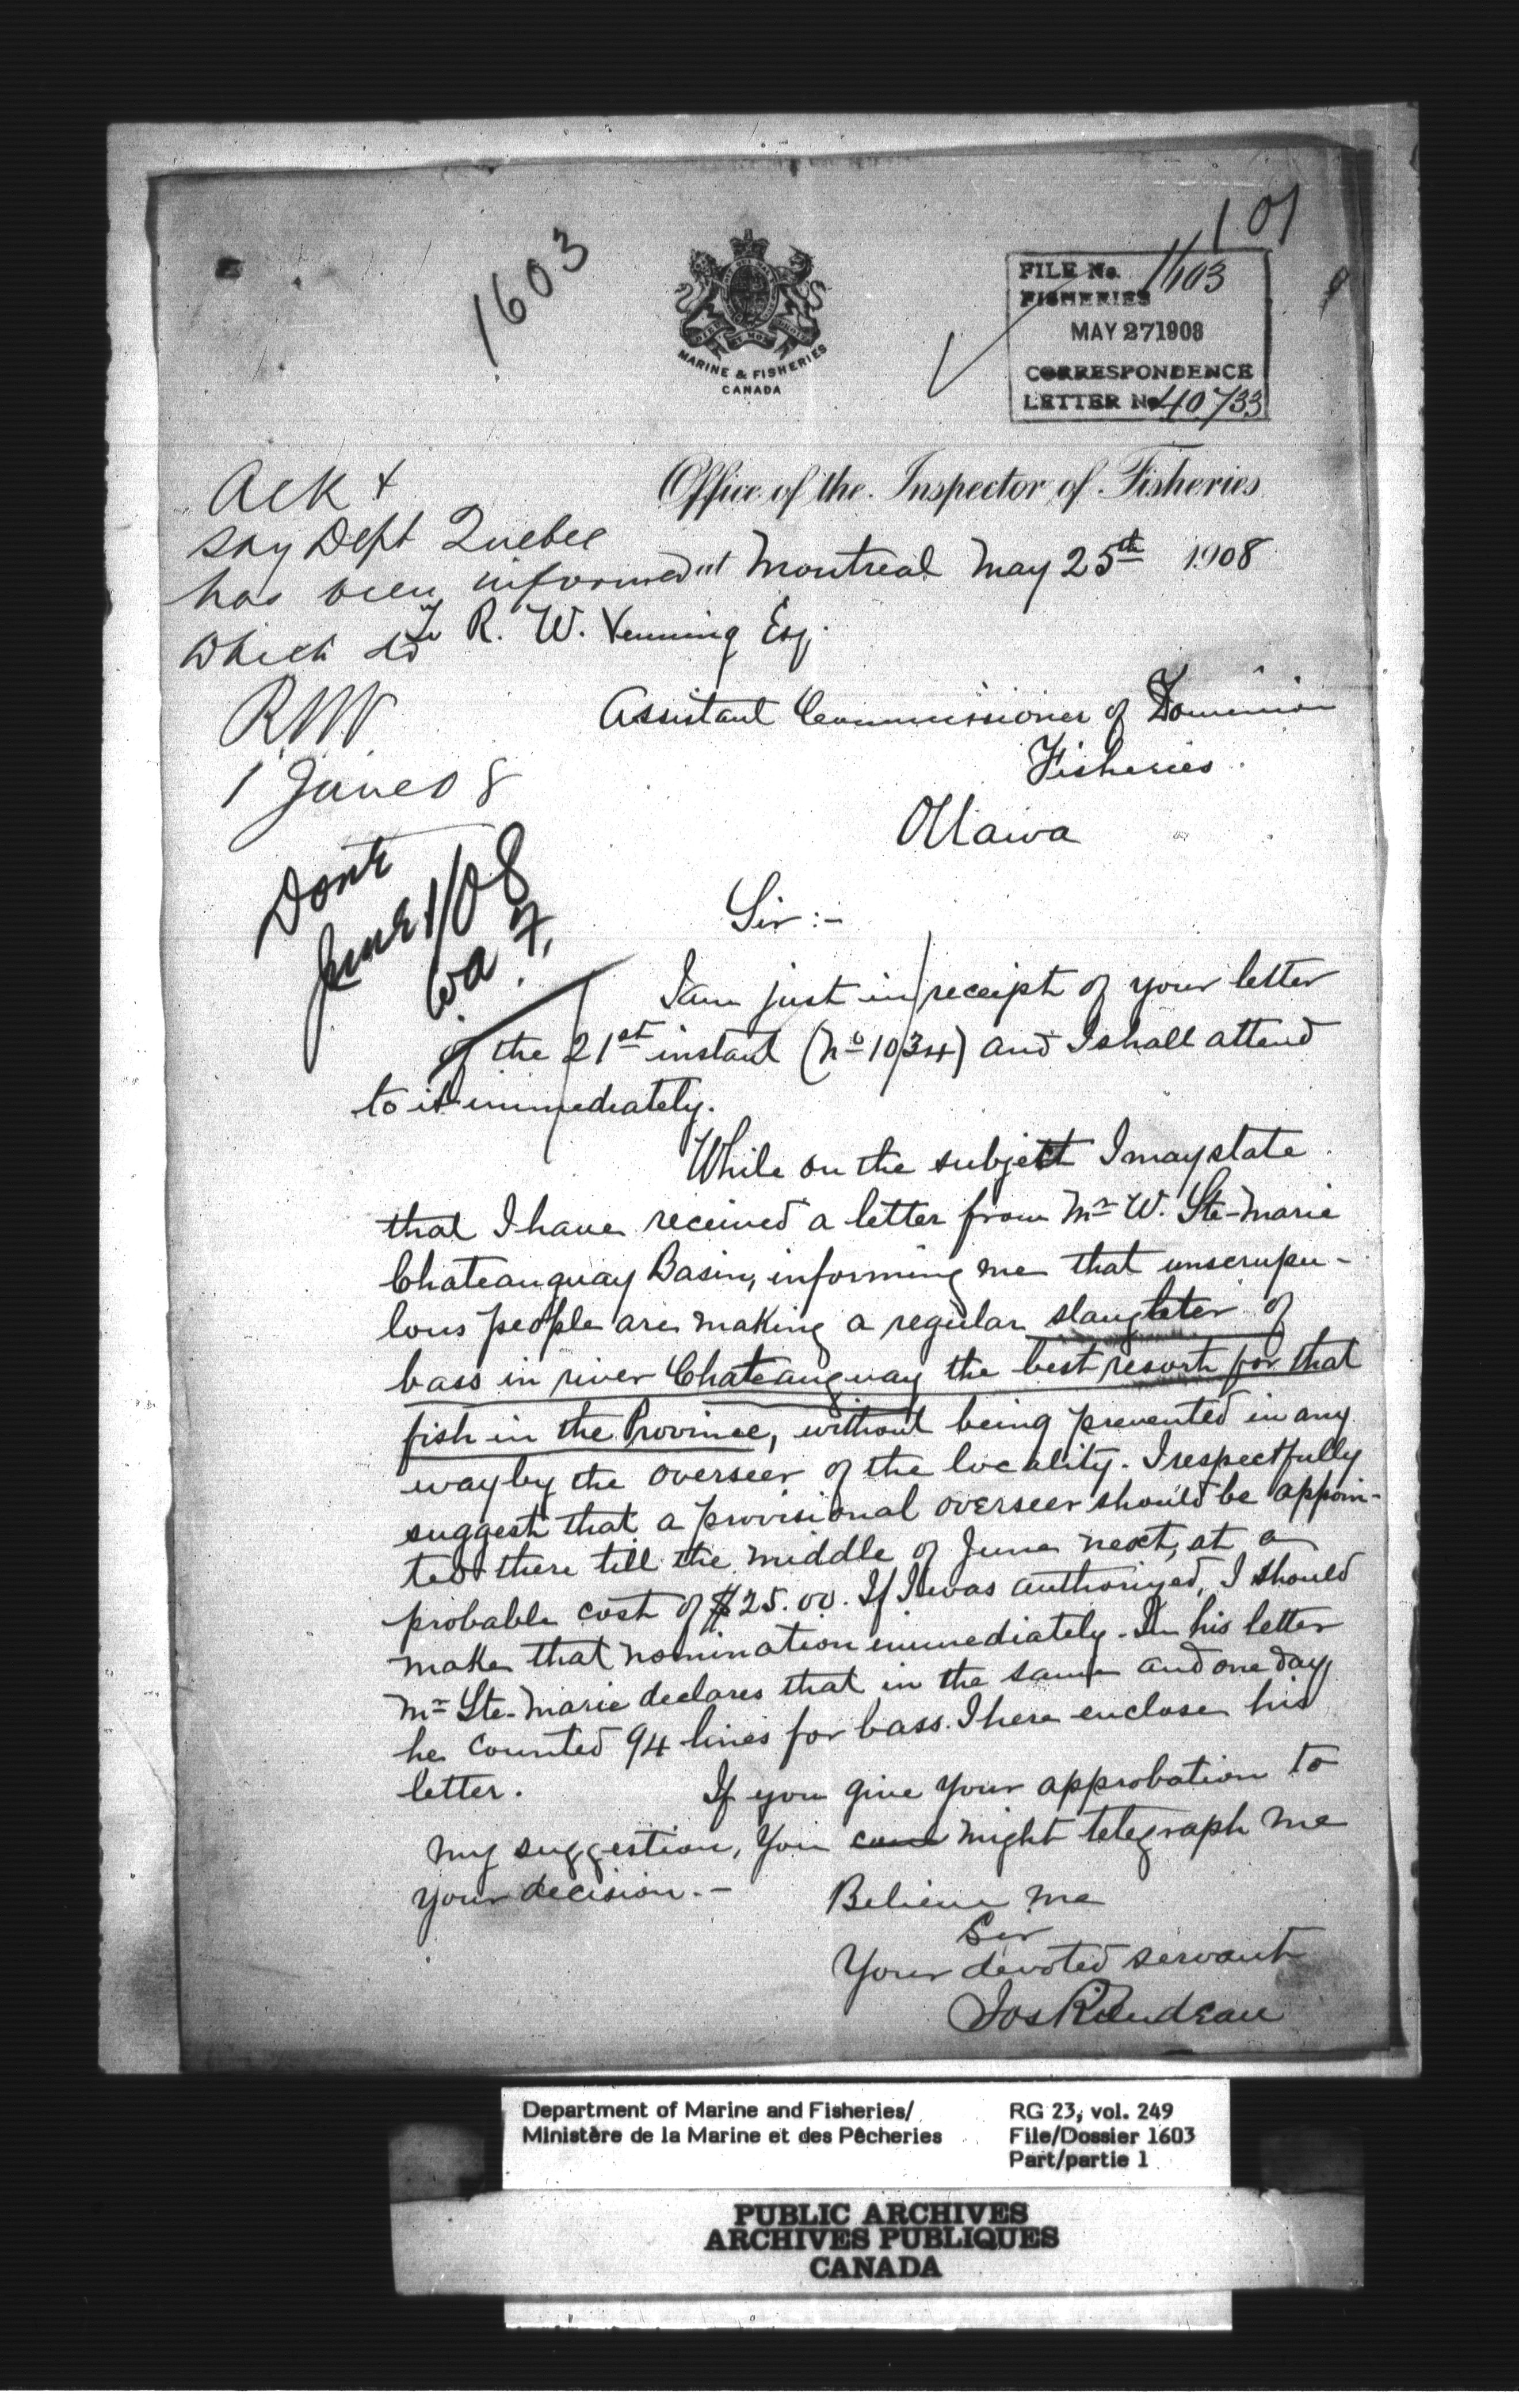 101
1603
MARINE & FISHERIES
CANADA
FILE No. 1603
FISHERIES
MAY 27 1908
CORRESPONDENCE
LETTER No 40733
Office of the Inspector of Fisheries
Ack &
say Dept Quebec
has been informed
which do
RNV
1 June 08
Done
June 1/08
at Montreal May 25th 1908
To R. W. Venning Esq.
Assistant Commissioner of Dominion
Fisheries.
Ottawa
Sir :-
I am just in receipt of your letter
of the 21st instant (No 1034) and I shall attend
to it immediately.
While on the subject I may state
that I have received a letter from Mr W. Ste-Marie
Chateauguay Basin, informing me that unscrupu-
lous people are making a regular slaugteter of
bass in river Chateauguay the best resort for that
fish in the Province, without being prevented in any
way by the overseer of the locality. I respectfully
suggest that a provisional overseer should be appoin-
ted there till the middle of June next, at a
probable cost of $25.00. If I was authorized, I should
make that nomination immediately. In his letter
Mr Ste-Marie declares that in the same and one day
he counted 94 lines for bass. I here enclose his
letter. If you give your approbation to
my suggestion, you might telegraph me
your decision.-
Believe me
Sir
Your devoted servant
Jos Riendeau
Department of Marine and Fisheries/
Ministère de la Marine et des Pêcheries
RG 23, vol. 249
File/Dossier 1603
Part/partie 1
PUBLIC ARCHIVES
ARCHIVES PUBLIQUES
CANADA